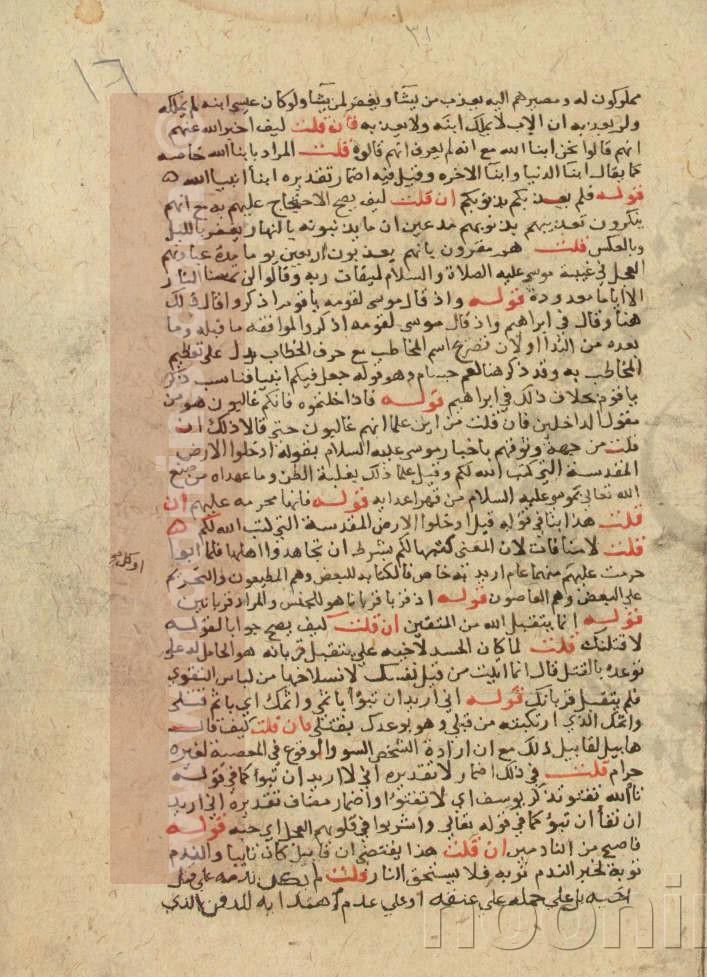 ٣١
١٦
مملوكون له ومصيرهم اليه يعذب من يشا ويغفر لمن يشا ولو كان عيسى ابنه لم يملكه
ولم يعذبه ان الاب لا يملك ابنه ولا يعذبه فان قلت كيف اخبر الله عنهم
انهم قالوا نحن ابنا الله مع انه لم يعرف انهم قالوه قلت المراد بابنا الله خاصه
كما يقال ابنا الدنيا وابنا الاخره وقيل فيه اضمار تقديره ابنا انبيا الله
قوله فلم يعذبكم بذنوبكم ان قلت كيف يصح الاحتجاج عليهم به مع انهم
ينكرون تعذيبهم بذنوبهم مدعين ان ما يذنبونه بالنهار يغفر بالليل
وبالعكس قلت هم مقرون بانهم يعذبون اربعين يوما مدة عبادتهم
العجل في غيبة موسى عليه الصلاة والسلام لميقات ربه وقالوا لن تمسنا النار
الا اياما معدودة قوله واذ قال موسى لقومه يا قوم اذكروا قال ذلك
هنا وقال في ابراهيم واذ قال موسى لقومه اذكروا لموافقه ما قبله وما
بعده من الندا او لان تصريح اسم المخاطب مع حرف الخطاب يدل على تعظيم
المخاطب به وقد ذكر هنا نعم جسام وهو قوله جعل فيكم انبيا فناسب ذكر
يا قوم بخلاف ذلك في ابراهيم قوله فاذا دخلتموه فانكم غالبون هو من
مقول الداخلين فان قلت من اين علما انهم غالبون حتى قالا ذلك
قلت من جهة وثوقهم باخبار موسى عليه السلام بقوله ادخلوا الارض
المقدسة التي كتب الله لكم وقيل علما ذلك بغلبة الظن وما عهداه من صنع
الله تعالى بموسى عليه السلام من قهر اعدايه قوله فانها محرمه عليهم ان
قلت هذا ينافي قوله قبل ادخلوا الارض المقدسة التي كتب الله لكم
قلت لا منافات لان المعنى كتبها لكم بشرط ان تجاهدوا اهلها فلما ابوا
حرمت عليهم منهما عام اريد به خاص فالكتابه للبعض وهم المطيعون والتحريم
على البعض وهم العاصون قوله اذ قربا قربانا هو للجنس والمراد قربانين
قوله انما يتقبل الله من المتقين ان قلت كيف يصح جوابا لقوله
لاقتلنك قلت لما كان الحسد لاخيه على تقبل قربانه هو الحامل له على
توعده بالقتل قال انما اتيت من قبل نفسك لانسلاخها من لباس التقوى
فلم يتقبل قربانك قوله اني اريد ان تبوا باثمي واثمك اي باثم قتلي
واثمك الذي ارتكبته من قبلي وهو توعدك بقتلي فان قلت كيف قال
هابيل لقابيل ذلك مع ان ارادة الشخص السو والوقوع في المعصية لغيره
حرام قلت في ذلك اضمار لا تقديره اني لا اريد ان تبوا كما في قوله
تالله تفتو تذكر يوسف اي لا تفتوا او اضمار مضاف تقديره اني اريد
ان تبو كما في قوله تعالى واشربوا في قلوبهم العجل اي حبه قوله
فاصبح من النادمين ان قلت هذا يقتضي ان قابيل كان تايبا والندم
توبة لخبر الندم توبه فلا يستحق النار قلت لم يكن ندمه على قتل
اخيه بل على حمله على عنقه او على عدم اهتدايه للدفن الذي
noonin